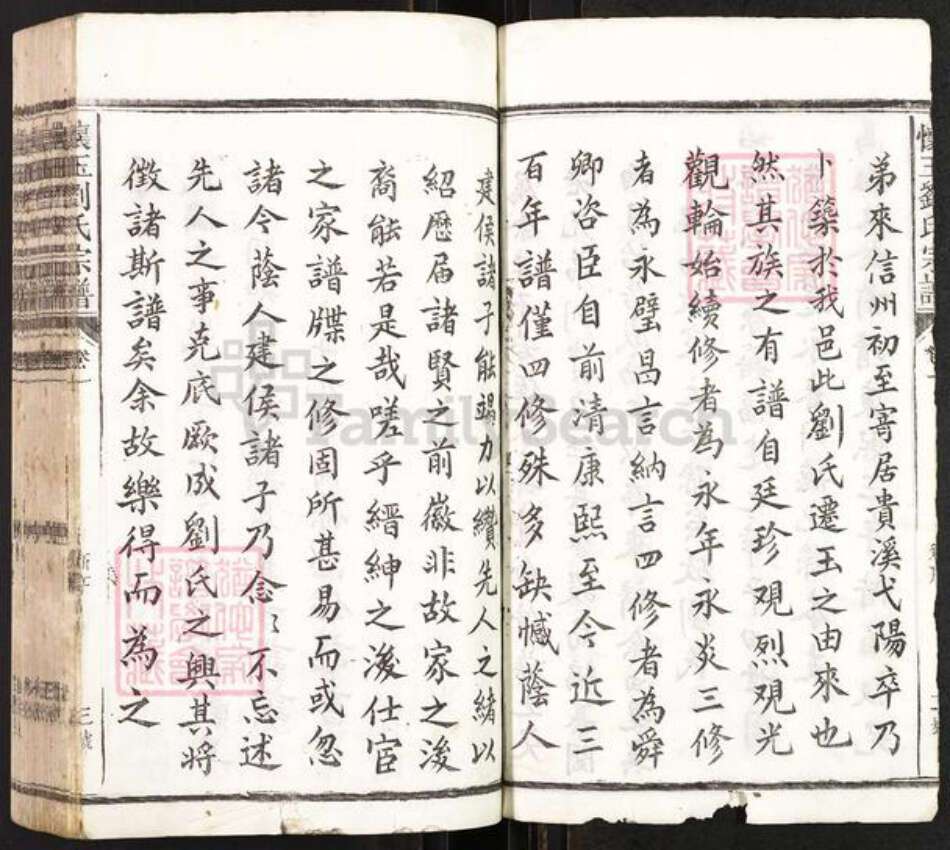 懷玉劉氏宗譜
弟來信州初至寄居貴溪弋陽卒乃
卜築於我邑此劉氏遷玉之由來也
然其族之有譜自廷珍觀烈觀光
觀輪始續修者為永年永炎三修
者為永璧昌言納言四修者為舜
卿咨臣自前清康熙至今近三
百年譜僅四修殊多缺憾蔭人
建侯諸子能竭力以纘先人之緒以
紹歷屆諸賢之前徽非故家之後
裔能若是哉嗟乎縉紳之後仕宦
之家譜牒之修固所甚易而或忽
諸今蔭人建侯諸子乃念〻不忘述
先人之事克底厥成劉氏之興其將
徵諸斯譜矣余故樂得而為之
懷玉劉氏宗譜
三號
FamilySearch